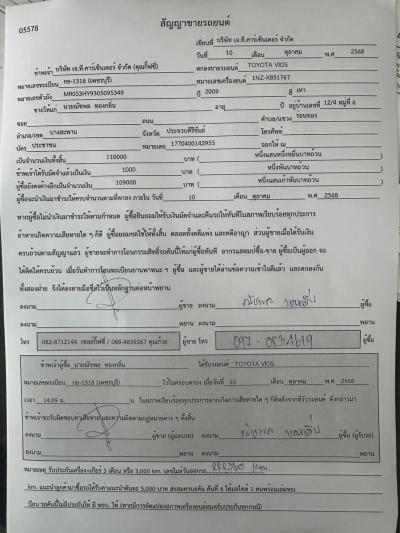 05578
สัญญาขายรถยนต์
เขียนที่ บริษัท เจ.ที.คาร์เซ็นเตอร์ จำกัด
วันที่ 10 เดือน ตุลาคม พ.ศ 2568
ข้าพเจ้า บริษัท เจ.ที.คาร์เซ็นเตอร์ จำกัด (คุณกี้ฟซี่) ตกลงขายรถยนต์ TOYOTA VIOS
หมายเลขทะเบียน กธ-1318 (เพชรบุรี) หมายเลขเครื่องยนต์ 1NZ-X851767
หมายเลขตัวถัง MR053HY9305095349 ปี 2009 สี เทา
ขายให้แก่ นายณัชพล ทองกลิ่น อายุ ปี อยู่บ้านเลขที่ 12/4 หมู่ที่ 6
ซอย ถนน ตำบล/แขวง รอนทอง
อำเภอ/เขต บางสะพาน จังหวัด ประจวบคีรีขันธ์ โทรศัพท์
บัตร ประชาชน หมายเลข 1770400142955 ออกให้ ณ
เป็นจำนวนเงินทั้งสิ้น 110000 บาท ( หนึ่งแสนหนึ่งหมื่นบาทถ้วน )
ข้าพเจ้าได้รับมัดจำแล้วเป็นเงิน 1000 บาท ( หนึ่งพันบาทถ้วน )
ผู้ซื้อยังคงค้างอีกเป็นจำนวนเงิน 109000 บาท ( หนึ่งแสนเก้าพันบาทถ้วน )
ผู้ซื้อจะนำเงินมาชำระให้ครบจำนวนตามที่ตกลง ภายใน วันที่ 10 เดือน ตุลาคม พ.ศ 2568
หากผู้ซื้อไม่นำเงินมาชำระให้ตามกำหนด ผู้ซื้อยินยอมให้ริบเงินมัดจำและคืนรถให้ทันทีในสภาพเรียบร้อยทุกประการ
ถ้าหากเกิดความเสียหายใด ๆ ก็ดี ผู้ซื้อยอมชดใช้ให้ทั้งสิ้น ตลอดทั้งคดีแพ่ง และคดีอาญา ส่วนผู้ขายเมื่อได้รับเงิน
ครบถ้วนตามสัญญาแล้ว ผู้ขายจะทำการโอนกรรมสิทธิ์รถคันนี้ให้แก่ผู้ซื้อทันที อากรแสตมป์ซื้อ-ขาย ผู้ซื้อเป็นผู้ออก จะ
ได้ติดให้ครบถ้วน เมื่อวันทำการโอนทะเบียนยานพาหนะ ฯ ผู้ซื้อ และผู้ขายได้อ่านข้อความเข้าใจดีแล้ว และตกลงกัน
ทั้งสองฝ่าย จึงได้ลงลายมือชื่อไว้เป็นหลักฐานต่อหน้าพยาน
ลงนาม ผู้ขาย ลงนาม ณัชพล ทองกลิ่น ผู้ซื้อ
ลงนาม พยาน ลงนาม พยาน
โทร 082-8712144 เซลล์กี้ฟซี่ / 088-4839267 คุณก้วย ผู้ขาย โทร 097-0834619 ผู้ซื้อ
ข้าพเจ้าผู้ซื้อ นายณัชพล ทองกลิ่น ได้รับรถยนต์ TOYOTA VIOS
หมายเลขทะเบียน กธ-1318 (เพชรบุรี) ไว้ในครอบครอง เมื่อวันที่ 10 เดือน ตุลาคม พ.ศ 2568
เวลา 14.09 น.
ลงนาม ผู้ขาย (ผู้มอบรถ) ลงนาม ณัชพล ทองกลิ่น ผู้ซื้อ (ผู้รับรถ)
ลงนาม พยาน ลงนาม พยาน
หมายเหตุ รับประกันเครื่องเกียร์ 3 เดือน หรือ 3,000 km.